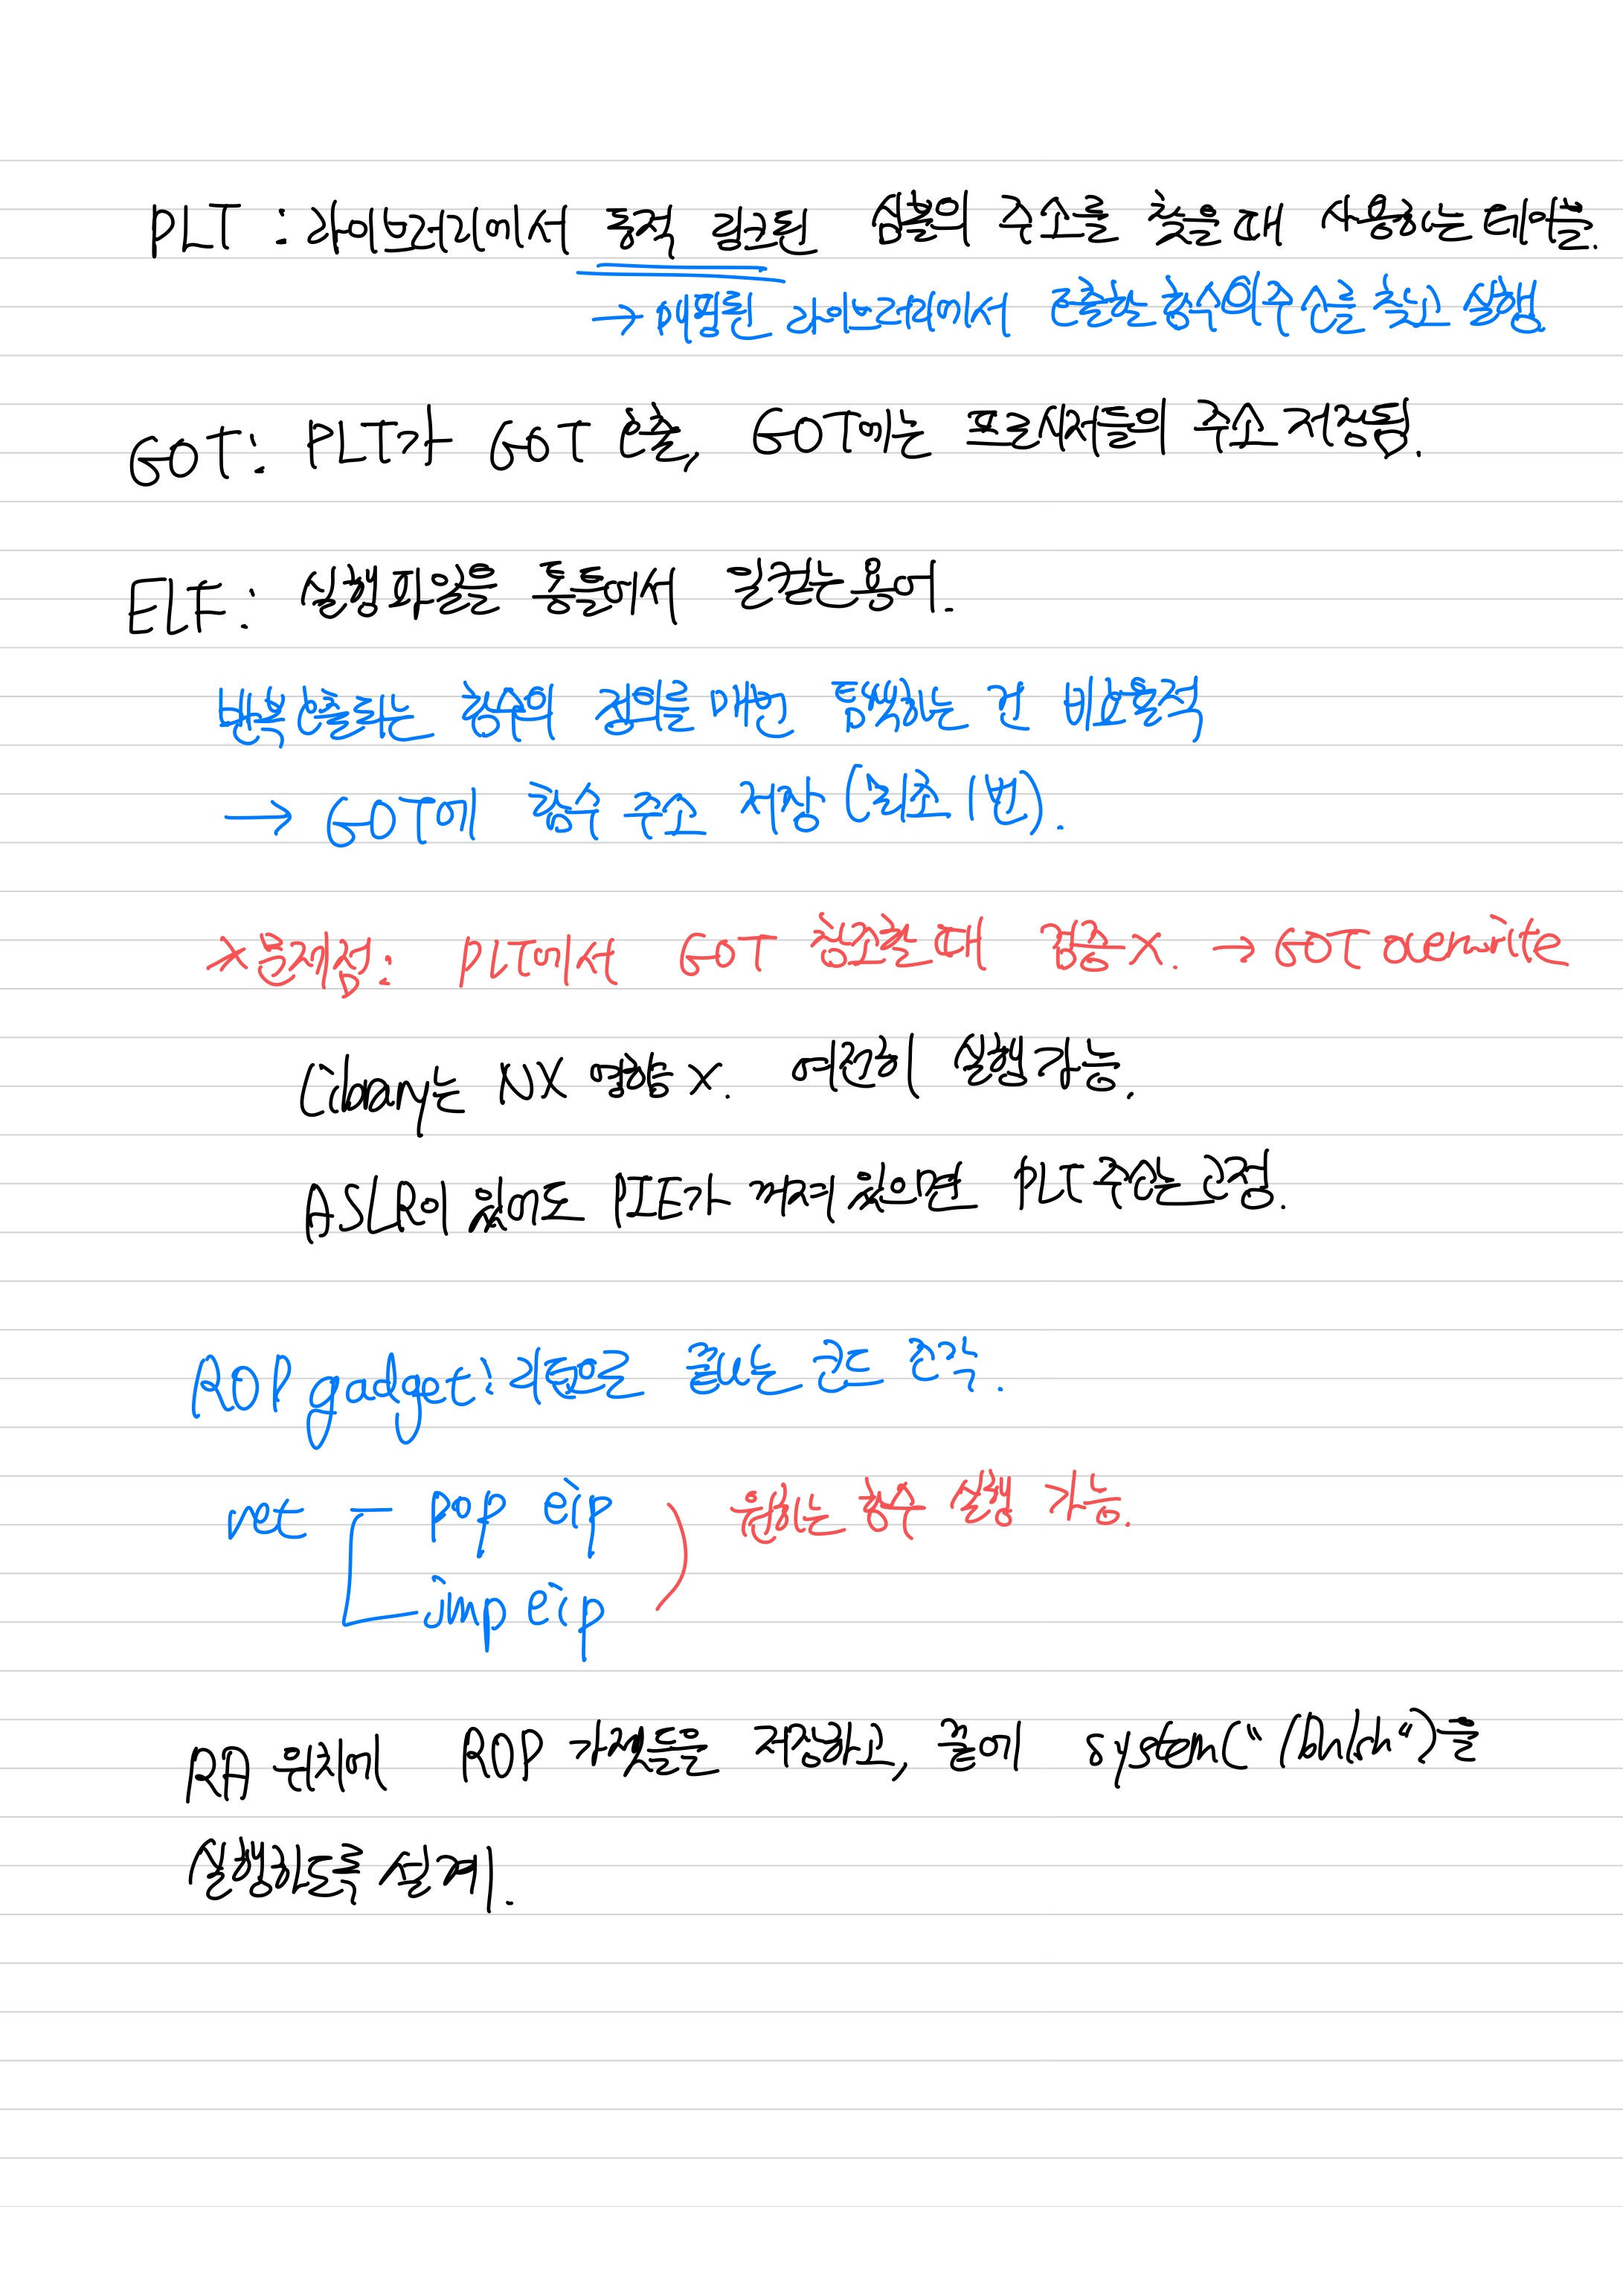 PLT : 라이브러리에서 동적 링크된 심볼의 주소를 찾을 때 사용하는 테이블.
→ 매핑된 라이브러리에서 호출할 함수의 주소를 찾고 실행
GOT: PLT가 GOT 호출, GOT에는 프로시저들의 주소 저장됨.
ELF: 실행파일을 통틀어서 일컫는 용어.
반복 호출되는 함수의 정의를 매번 탐색하는 건 비효율적
→ GOT에 함수 주소 저장 (최초 1번).
*문제점: PLT에서 GOT 참조할 때 검증 X. → GOT overwrite
Library는 NX 영향 X. 여전히 실행 가능.
ASLR이 있어도 PIE가 꺼져 있으면 PLT 주소는 고정.
ROP gadget: 리턴으로 끝나는 코드 조각.
ret pop eip 원하는 함수 실행 가능.
jmp eip
RA 위치에 ROP 가젯들을 저장하고, 끝에 system("/bin/sh")을
실행하도록 설계.